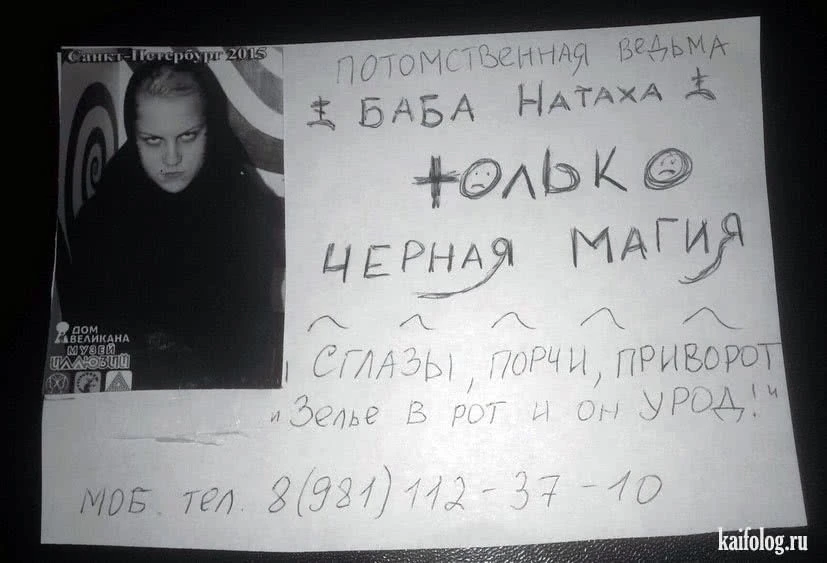 Санкт-Петербург 2015
ПОТОМСТВЕННАЯ ВЕДЬМА
БАБА НАТАХА
ТОЛЬКО
ЧЕРНАЯ МАГИЯ
СГЛАЗЫ, ПОРЧИ, ПРИВОРОТ
"Зелье В РОТ И ОН УРОД!"
МОБ. тел. 8(981)112-37-10
ДОМ
ВЕЛИКАНА
МУЗЕЙ
ИЛЛЮЗИЙ
kaifolog.ru